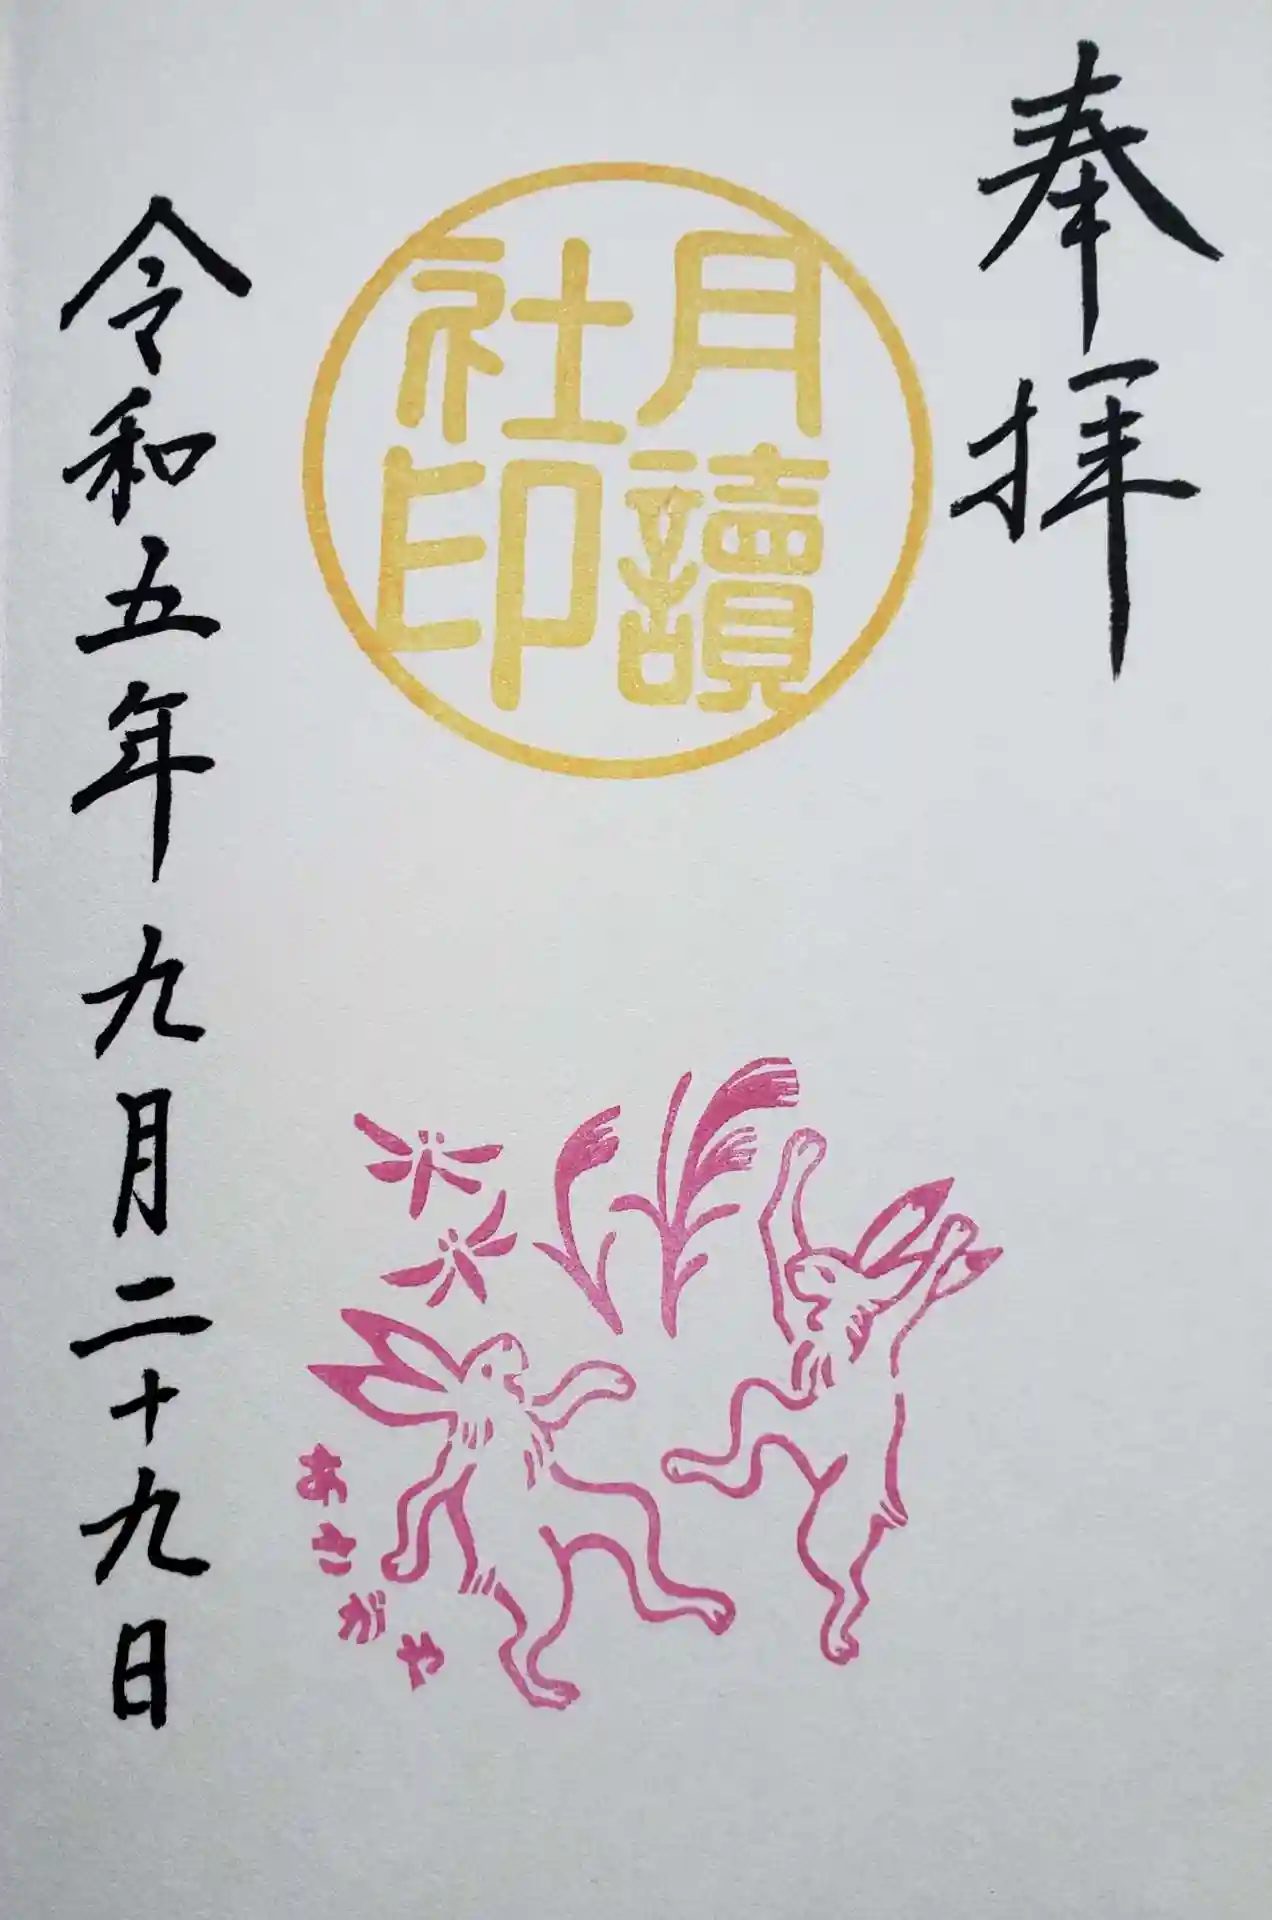 奉拝
月讀
社印
あさがや
令和五年九月二十九日